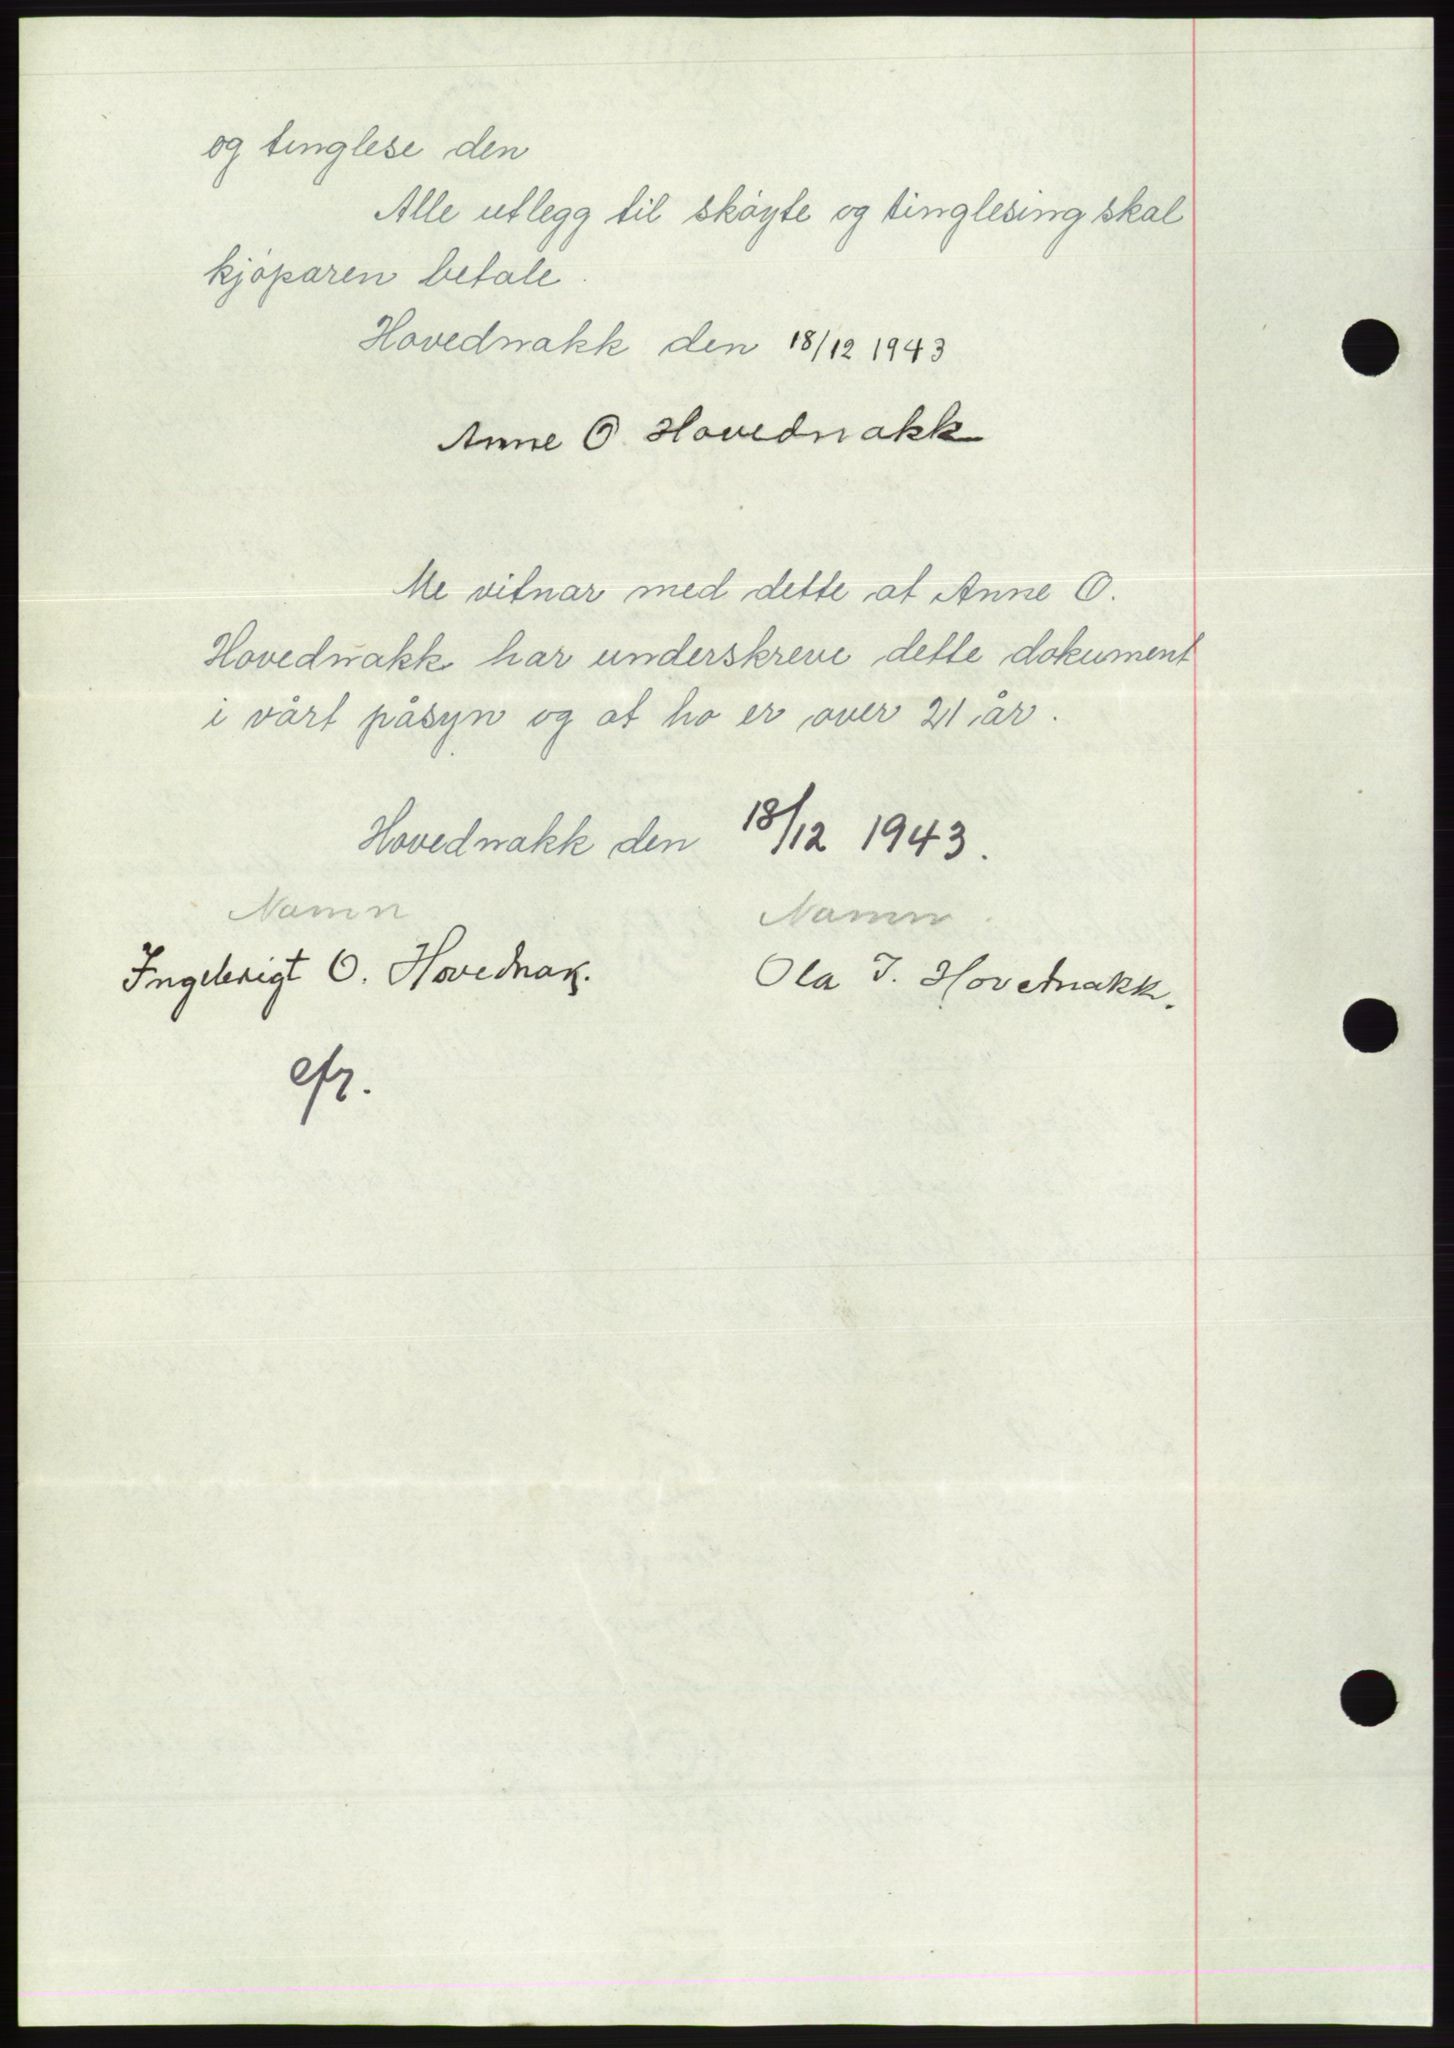 og tinglese den
Alle utlegg til skøyte og tinglesing skal
kjøparen betale.
Hovednakk den 18/12 1943
Anne O. Hovednakk
Me vitnar med dette at Anne O.
Hovednakk har underskreve dette dokument
i vårt påsyn og at ho er over 21 år.
Hovednakk den 18/12 1943.
Namn Namn
Ingebrigt O. Hovednak. Ola I. Hovednakk.
efr.